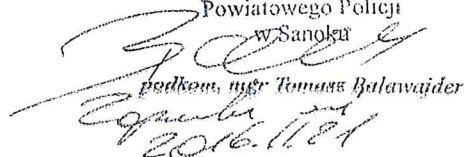 Powiatowego Policji
w Sanoku
podkom. mgr Tomasz Baławajder
2016.11.21